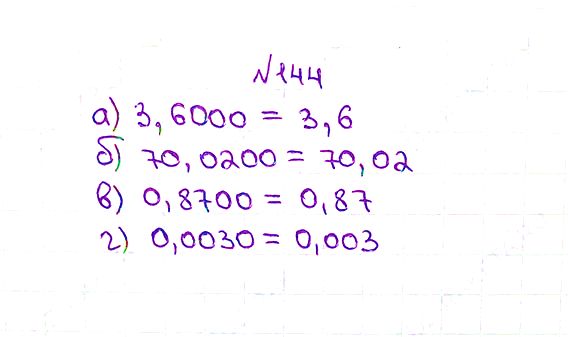 №144
а) 3,6000 = 3,6
б) 70,0200 = 70,02
в) 0,8700 = 0,87
г) 0,0030 = 0,003